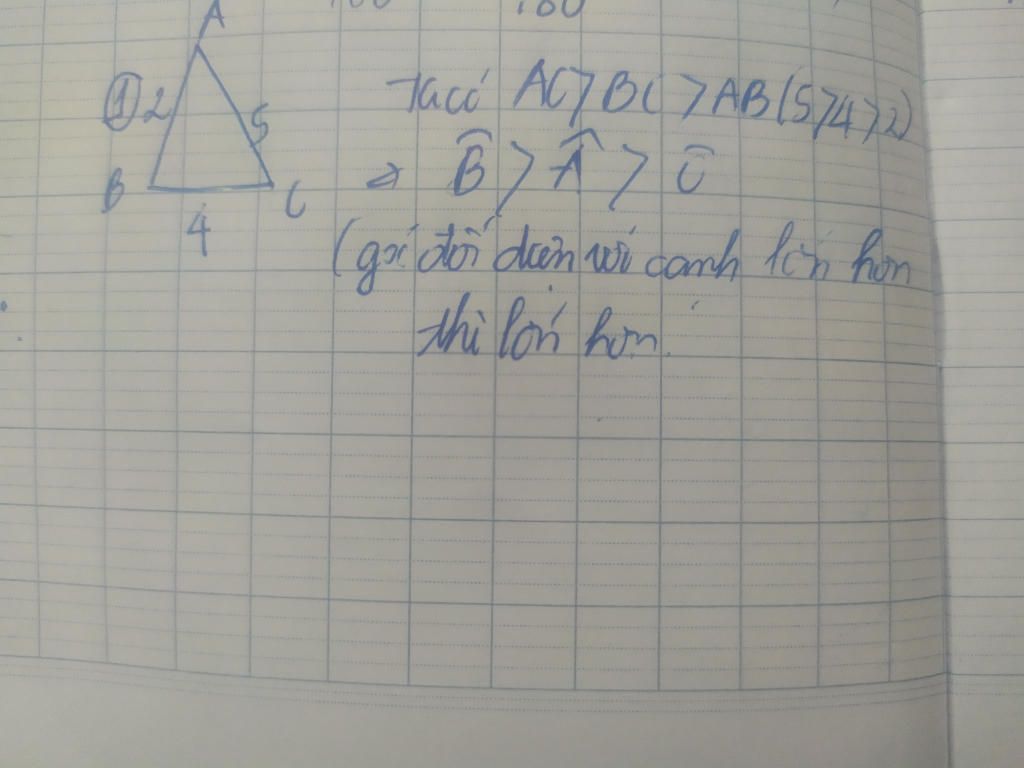 A
① 2
5
B
C
4
Ta có AC > BC > AB (5 > 4 > 2)
⇒ B̂ > Â > Ĉ
(góc đối diện với cạnh lớn hơn
thì lớn hơn.